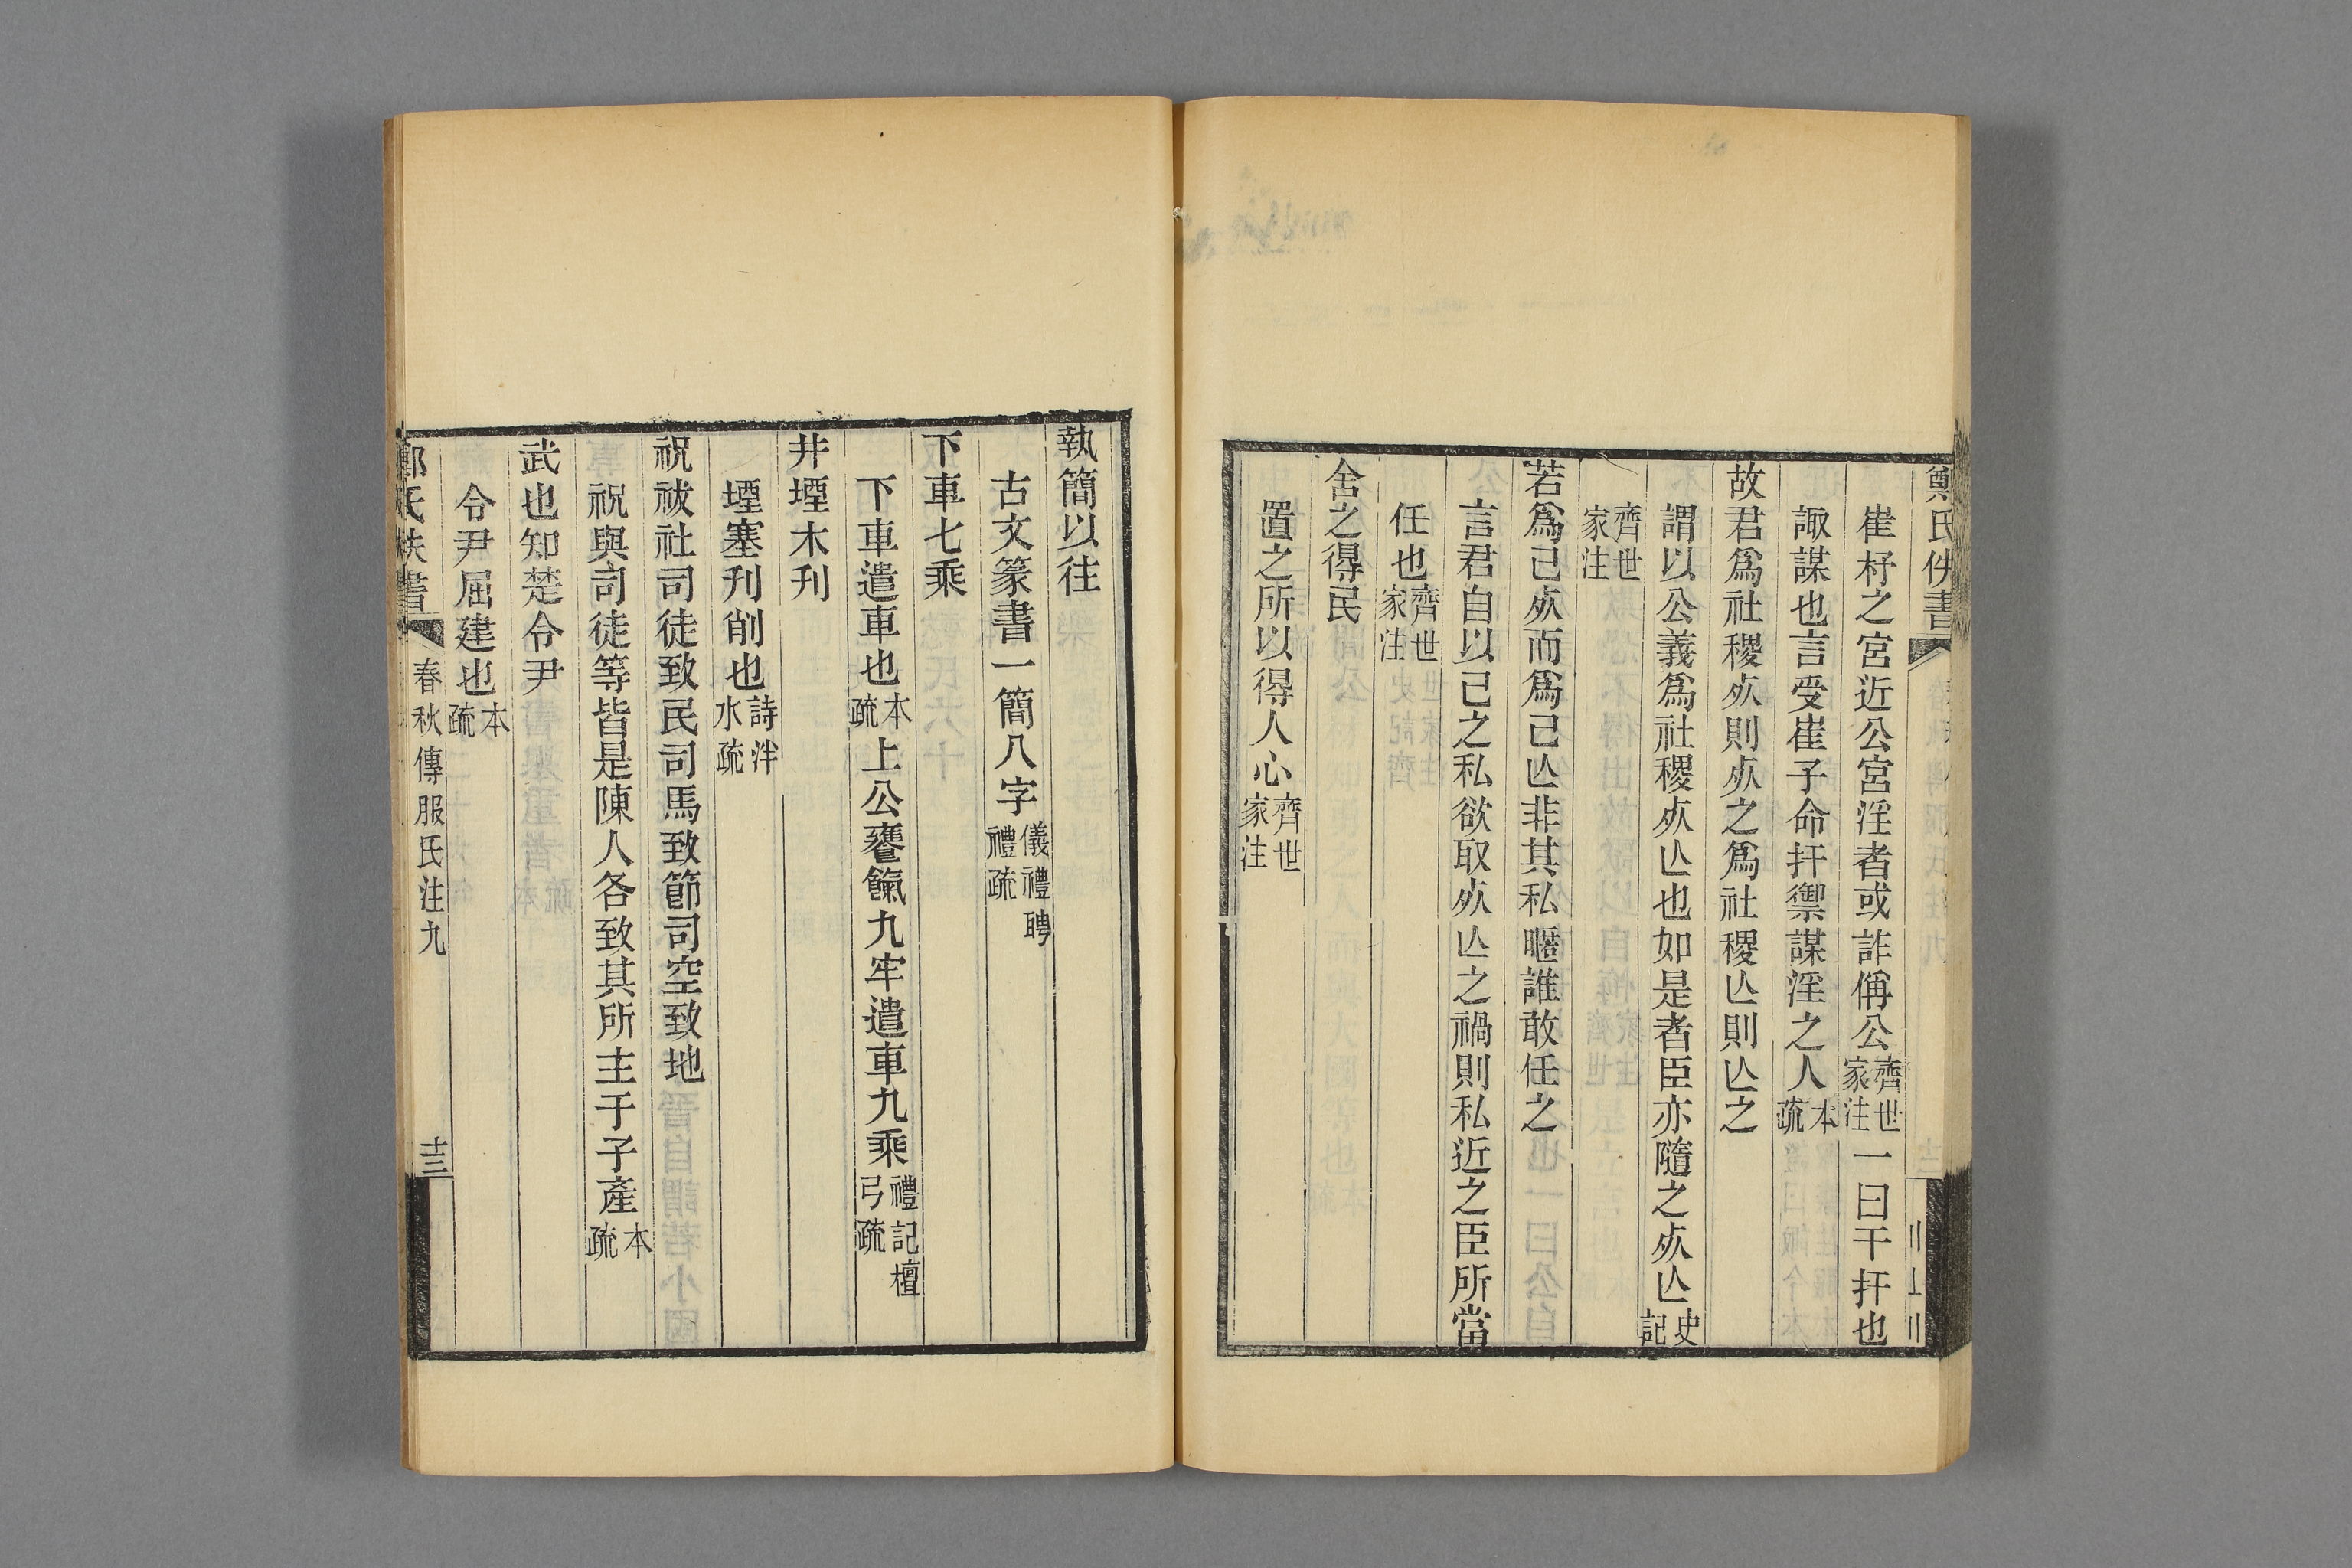 鄭氏佚書
崔杼之宮近公宮淫者或詐偁公齊世家注一曰干扞也
諏謀也言受崔子命扞禦謀淫之人本疏
故君爲社稷𣦸則𣦸之爲社稷亾則亾之
謂以公義爲社稷𣦸亾也如是者臣亦隨之𣦸亾史記
齊世家注
若爲己𣦸而爲己亾非其私暱誰敢任之
言君自以己之私欲取𣦸亾之禍則私近之臣所當
任也齊世家注
舍之得民
置之所以得人心齊世家注
執簡以往
古文篆書一簡八字儀禮聘禮疏
下車七乘
下車遣車也本疏上公饔餼九牢遣車九乘禮記檀弓疏
井堙木刊
堙塞刋削也詩泮水疏
祝祓社司徒致民司馬致節司空致地
祝與司徒等皆是陳人各致其所主于子產本疏
武也知楚令尹
令尹屈建也本疏
鄭氏佚書 春秋傳服氏注九 十三